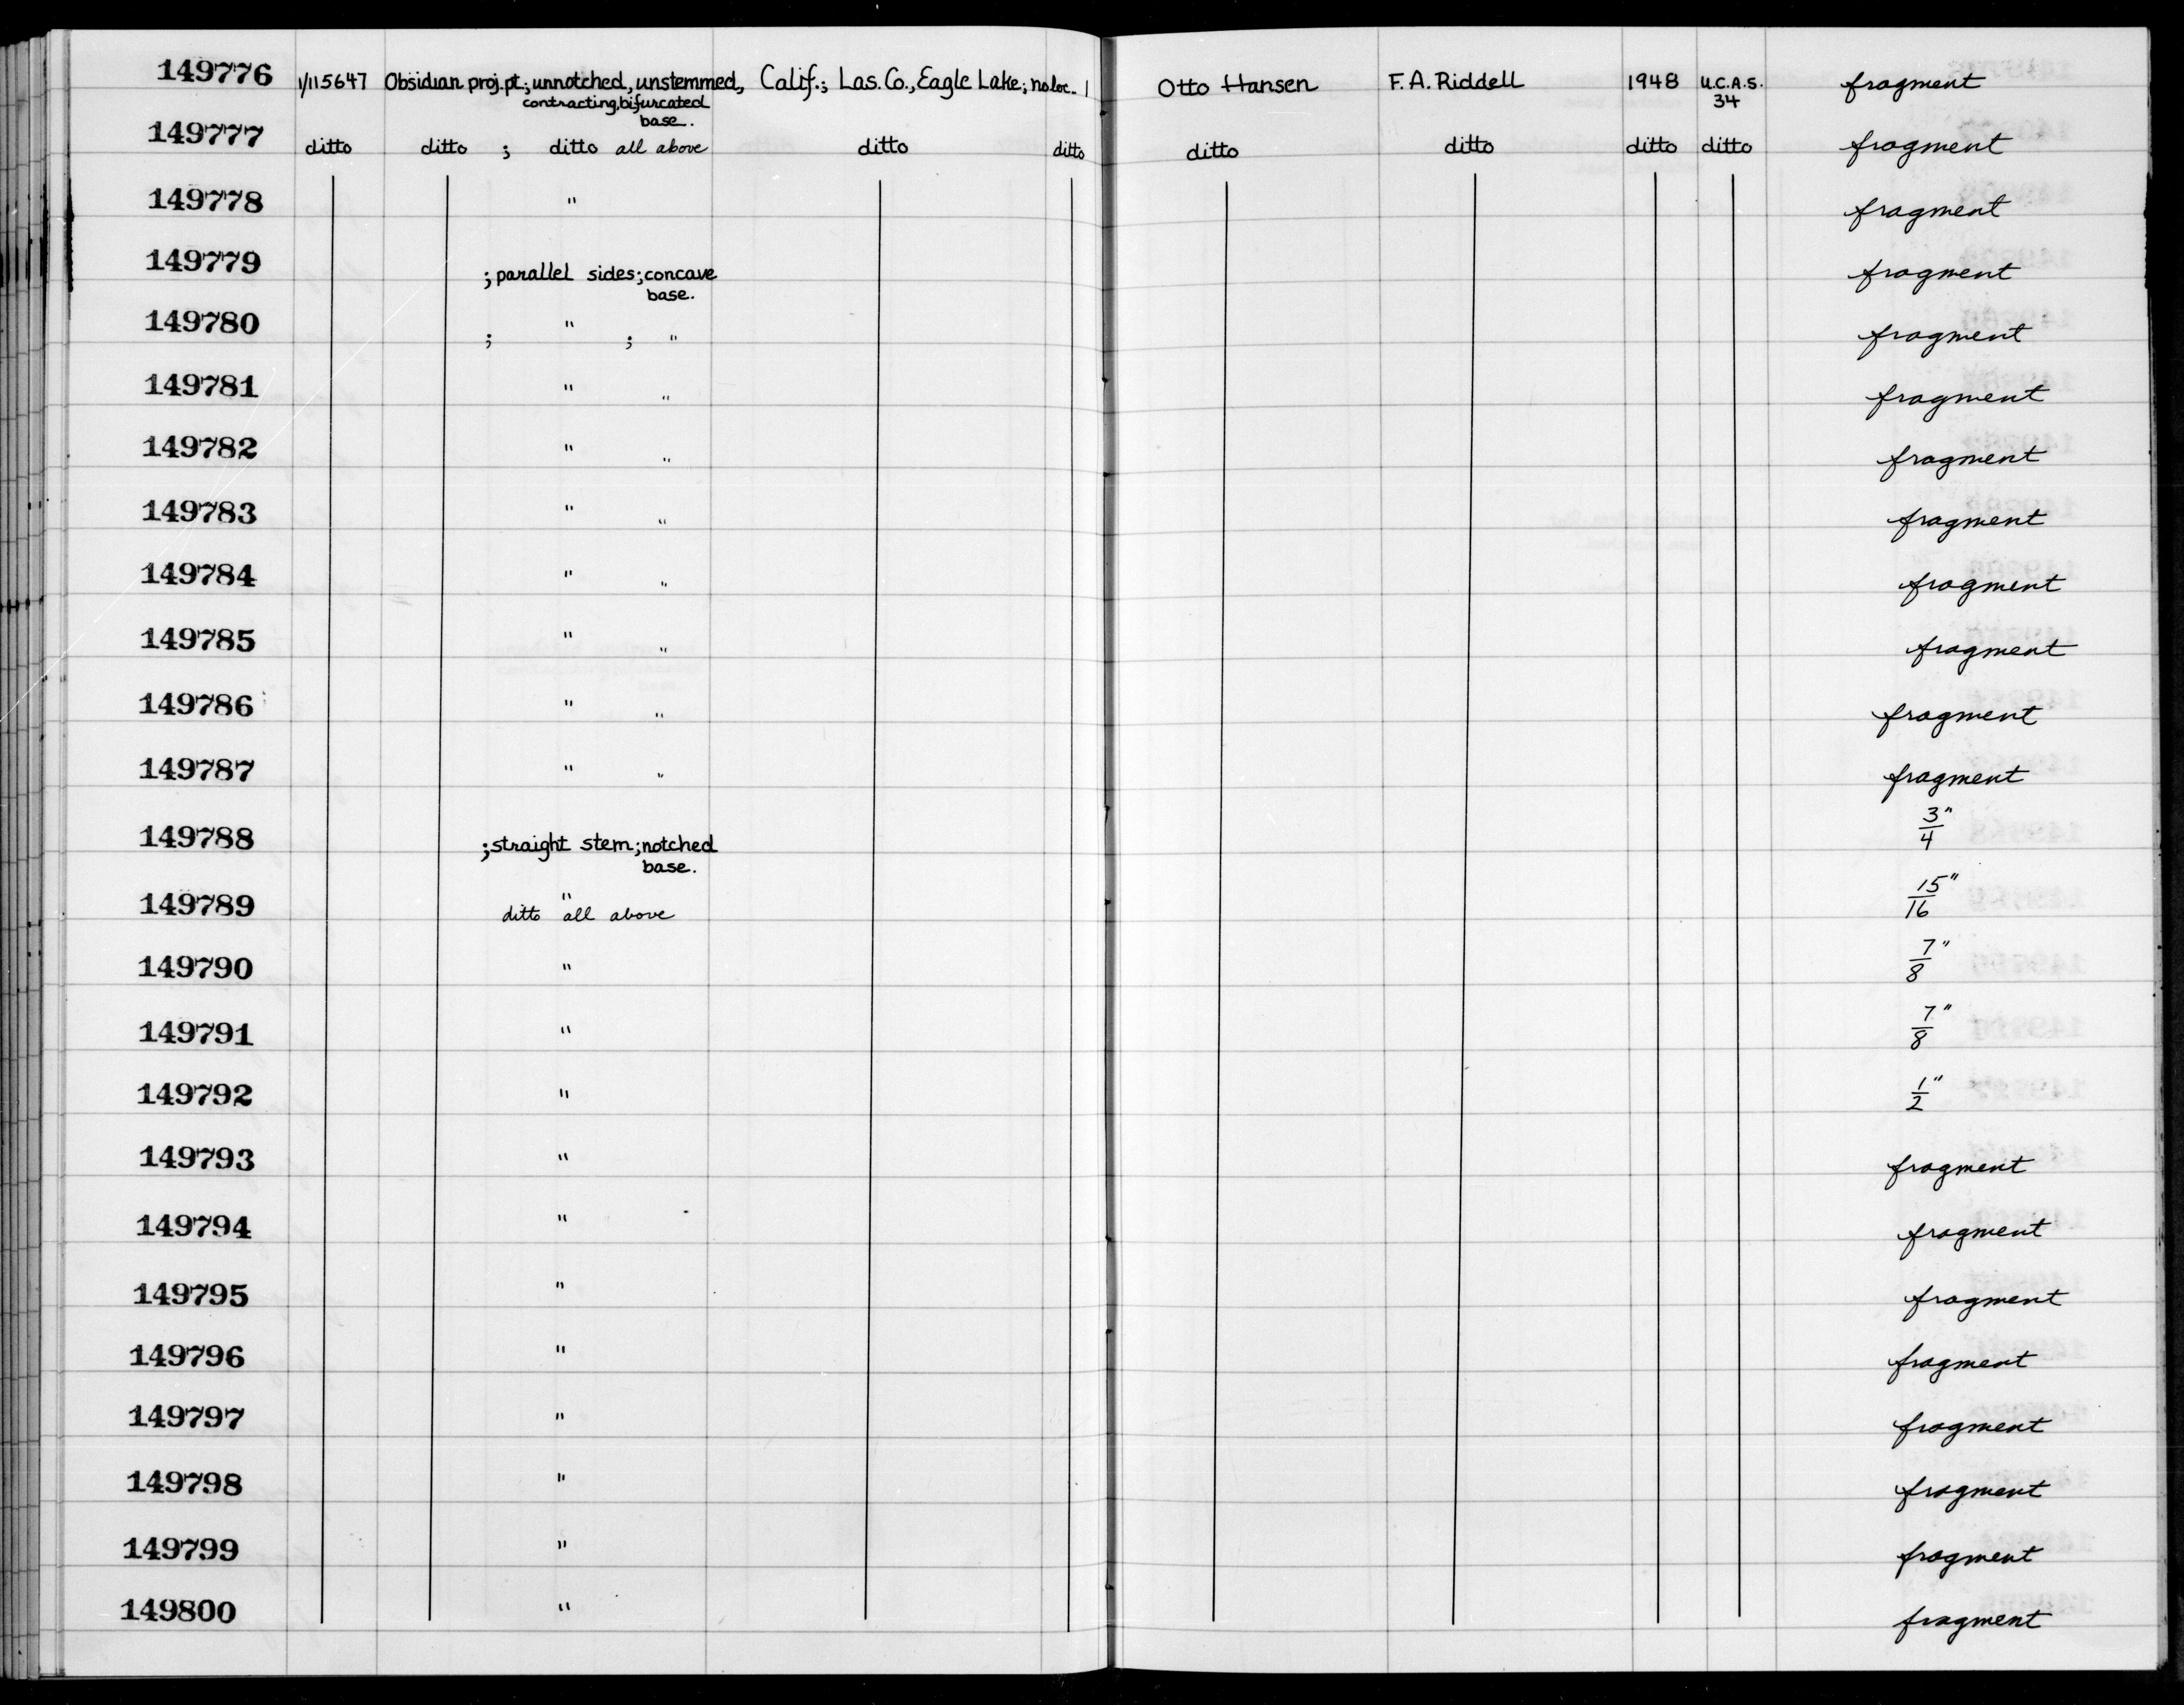 149776 1/115647 Obsidian proj.pt.; unnotched, unstemmed, Calif.; Las. Co., Eagle Lake; no loc. 1 Otto Hansen F. A. Riddell 1948 U.C.A.S. fragment
contracting, bifurcated 34
base.
149777 ditto ditto ; ditto all above ditto ditto ditto ditto ditto ditto fragment
149778 " fragment
149779 ; parallel sides; concave fragment
base.
149780 ; " ; " fragment
149781 " " fragment
149782 " " fragment
149783 " " fragment
149784 " " fragment
149785 " " fragment
149786 " " fragment
149787 " " fragment
149788 ; straight stem; notched 3/4"
base.
149789 " 15/16"
ditto all above
149790 " 7/8"
149791 " 7/8"
149792 " 1/2"
149793 " fragment
149794 " fragment
149795 " fragment
149796 " fragment
149797 " fragment
149798 " fragment
149799 " fragment
149800 " fragment